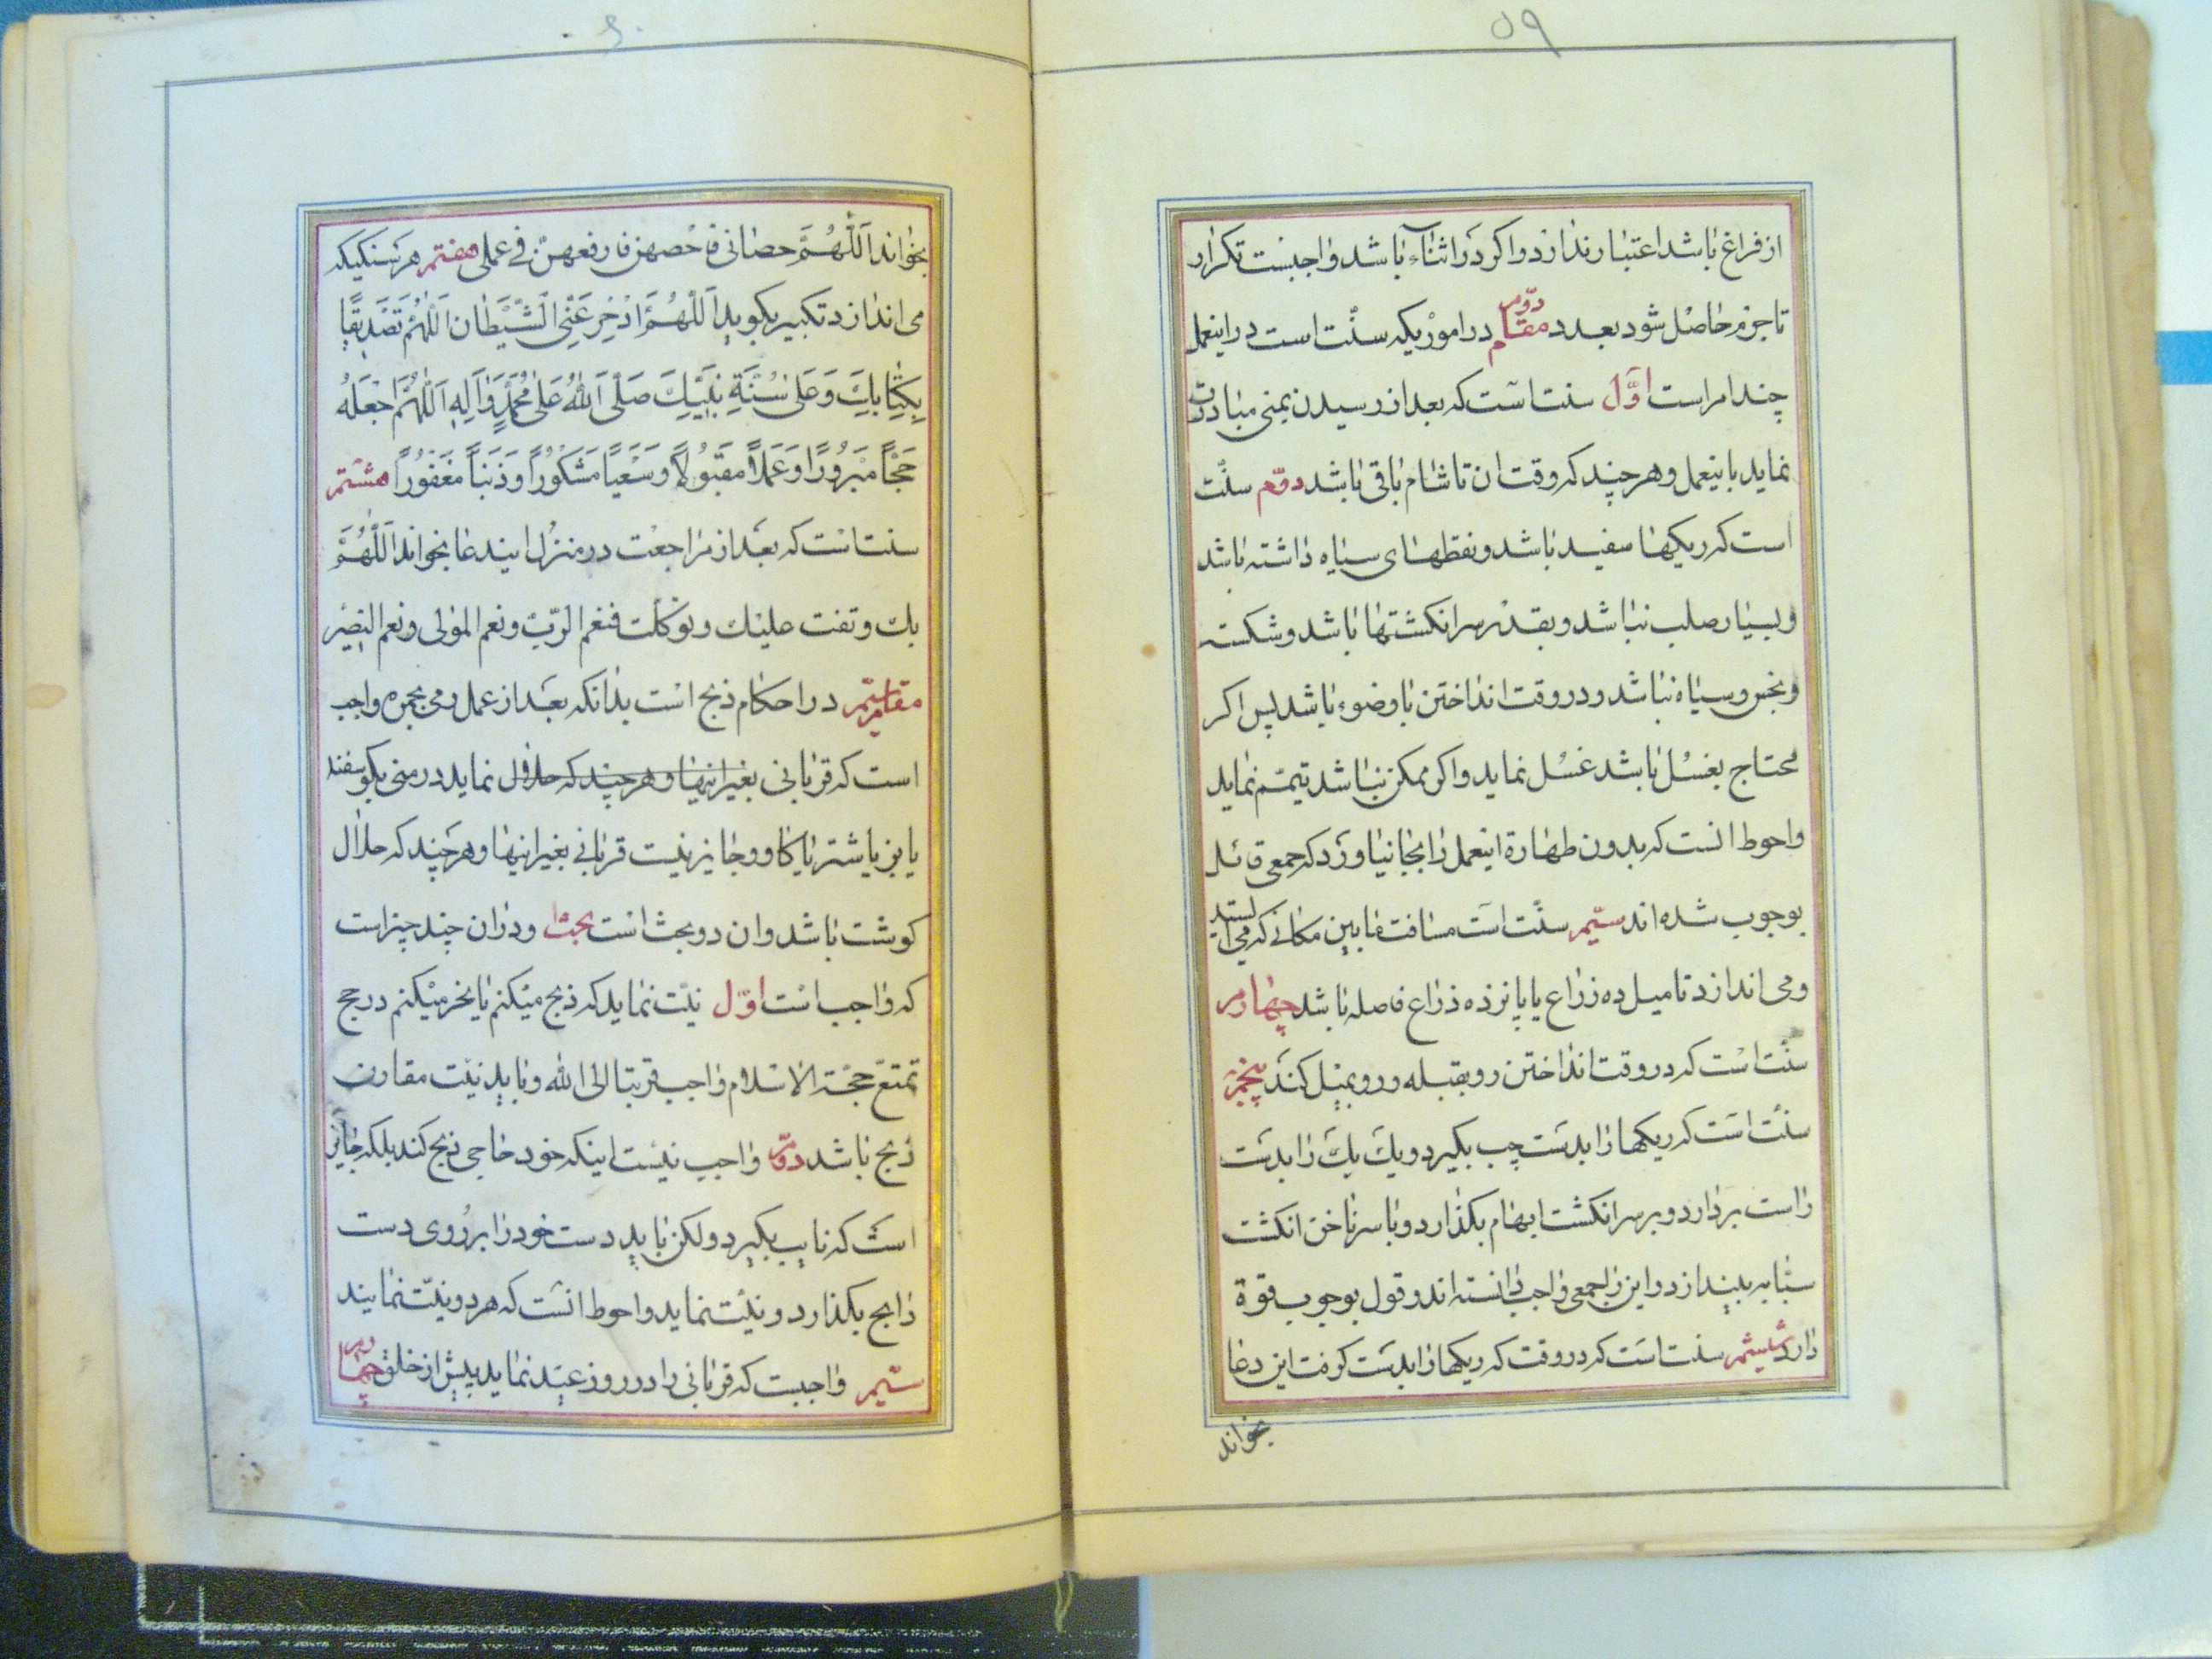 ۵۹
از فراغ باشد اعتبار ندارد و اکر در اثناء باشد واجبست تکرار
تا جزم حاصل شود بعدد مقام دوم در اموریکه سنت است در اینعمل
چند امر است اول سنت است که بعد از رسیدن بمنی مبادرت
نماید باینعمل و هر چند که وقت ان تا شام باقی باشد دوم سنت
است که ریکها سفید باشد و نقطهای سیاه داشته باشد
و بسیار صلب نباشد و بقدر سر انکشتها باشد و شکسته
و نجس و سیاه نباشد و در وقت انداختن با وضوء باشد پس اکر
محتاج بغسل باشد غسل نماید و اکر ممکن نباشد تیمم نماید
و احوط انست که بدون طهارة اینعمل را بجا نیاورد که جمعی قائل
بوجوب شده اند سیم سنت است مسافت مابین مکانی که می ایستد
و می اندازد تا میل ده زراع یا پانزده ذراع فاصله باشد چهارم
سنت است که در وقت انداختن رو بقبله و رو بمیل کند پنجم
سنت است که ریکها را بدست چب بکیرد و یک یک را بدست
راست بردارد و بر سر انکشت ابهام بکذارد و با سر ناخن انکشت
سبابه بیندازد و این را جمعی واجب دانسته اند و قول بوجوب قوة
دارد ششم سنت است که در وقت که ریکها را بدست کرفت این دعا
بخواند
۶۰
بخواند اَللّٰهُمَّ حصانی فاحصهن فارفعهن فی عملی هفتم هر سنکیکه
می اندازد تکبیر بکوید اَللّٰهُمَّ ادْخِر عَنِّی الشَّیْطان اَللّٰهُمَّ تَصْدیقًا
بِکِتابِكَ وَ عَلیٰ سُنَّةِ نَبِیِّكَ صَلَّی اللّٰهُ عَلیٰ مُحَمَّدٍ وَ اٰلِهِ اَللّٰهُمَّ اجْعَلْهُ
حَجّاً مَبْرُورًا وَ عَمَلاً مَقْبُولاً وَ سَعْیاً مَشْکُوراً وَ ذَنْباً مَغْفُوراً هشتم
سنت است که بعد از مراجعت در منزل ایندعا بخواند اَللّٰهُمَّ
بك وثقت علیك و توکلت فنعم الرّبّ و نعم المولی و نعم النصیر
مقام سیم در احکام ذبح است بدانکه بعد از عمل رمی بجمره واجب
است که قربانی بغیر اینها و هر چند که حلال نماید در منی بکوسفند
یا بز یا شتر یا کاو و جایز نیست قربانی بغیر اینها و هر چند که حلال
کوشت باشد و ان دو بحث است بحث ا و در ان چند چیز است
که واجب است اوّل نیّت نماید که ذبح میکنم یا نحر میکنم در حج
تمتّع حجّة الاسلام واجب قربتا الی الله و باید نیّت مقارن
ذبح باشد دوّم واجب نیست اینکه خود حاجی ذبح کند بلکه جایز
است که نایب بکیرد و لکن باید دست خود را بر روی دست
ذابح بکذارد و نیّت نماید و احوط انست که هر دو نیّت نمایند
سیّم واجبست که قربانی را در روز عید نماید پیش از حلق چهارم